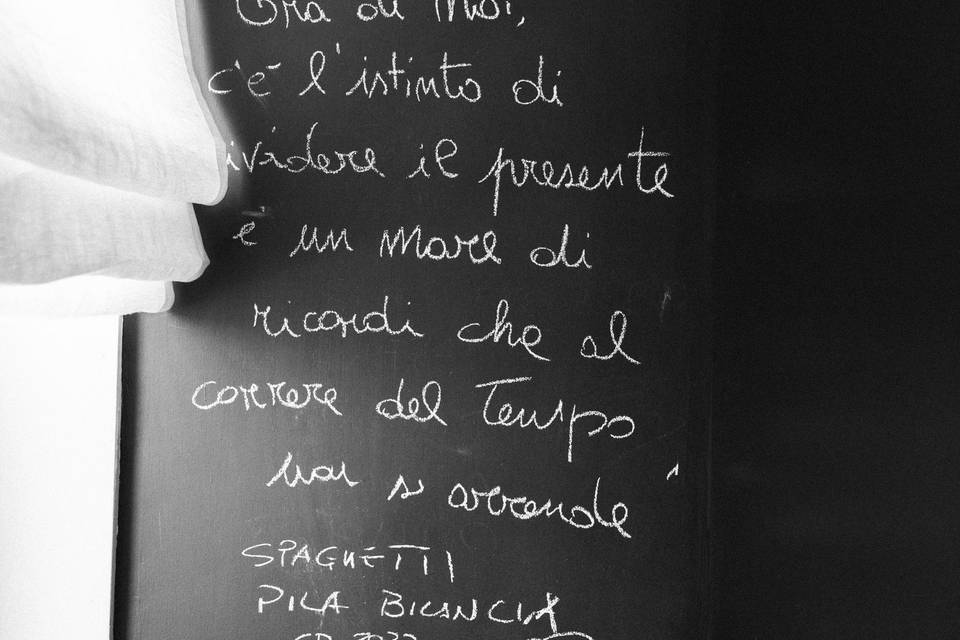 di noi,
c'è l'istinto di
ividere il presente
è un mare di
ricordi che al
correre del Tempo
non si arrende
SPAGHETTI
PILA BILANCIA
CR 2032